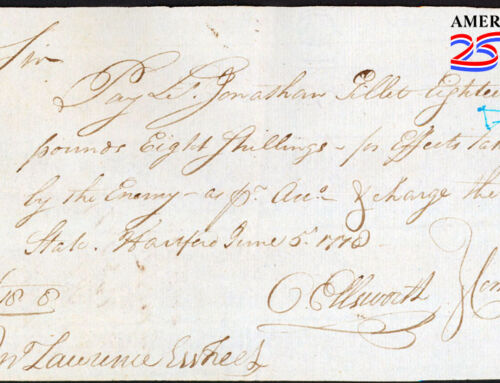 AMER
25
Sir
Pay Lt. Jonathan Gillet Eightee
pounds Eight Shillings - for Effects tak
by the Enemy - as pr. Acco. & charge the
State. Hartford June 5. 1778
O. Ellsworth
18 8
Lawrence